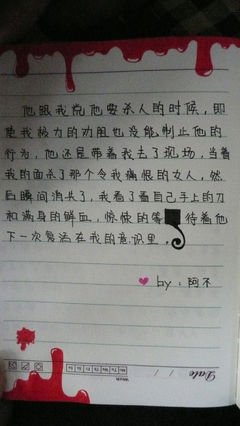 他跟我说他要杀人的时候，即
使我极力的劝阻也没能制止他的
行为，他还是带着我去了现场，当着
我的面杀了那个令我痛恨的女人，然
后瞬间消失了，我看了看自己手上的刀
和满身的鲜血，惊悚的等待着他
下一次复活在我的意识里。
by：阿不
Date / /